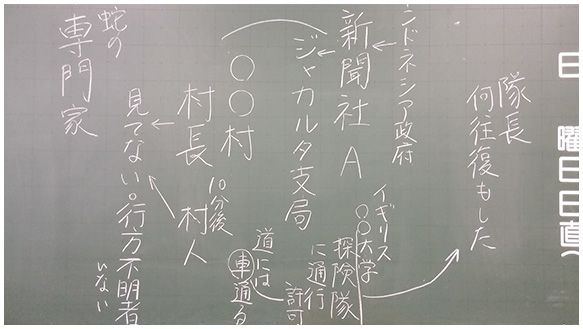 日
曜日
日直
隊長
何往復もした
ンドネシア政府
イギリス
○○大学
探険隊
に通行
許可
新聞社A
ジャカルタ支局
道には
車通る
○○村
村長
10分後
村人
見てない。行方不明者
いない
蛇の
専門家